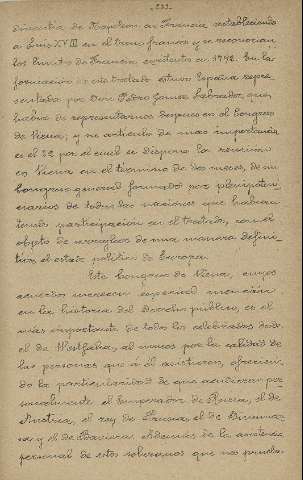 - 233 -
dinastia de Napoleon en Francia restableciendo
a Luis XVIII en el trono frances y se reconocian
los limites de Francia existentes en 1792. En la
formacion de este tratado estuvo España repre-
sentada por Don Pedro Gomez Labrador, que
hubo de representarnos despues en el Congreso
de Viena; y su articulo de mas importancia
es el 32 por el cual se dispone la reunion
en Viena en el término de dos meses, de un
Congreso general formado por plenipoten-
ciarios de todas las naciones que habian
tenido participacion en el tratado, con el
objeto de arreglar de una manera defini-
tiva el estado politico de Europa.
Este Congreso de Viena, cuyos
acuerdos merecen especial mencion
en la historia del Derecho público, es el
mas importante de todos los celebrados desde
el de Westfalia, al menos por la calidad de
las personas que á él asistieron, ofrecien-
do la particularidad de que acudieron per-
sonalmente el Emperador de Rusia, el de
Austria, el rey de Prusia, el de Dinamar-
ca y el de Baviera. Ademas de la asistencia
personal de estos soberanos que nos prueba